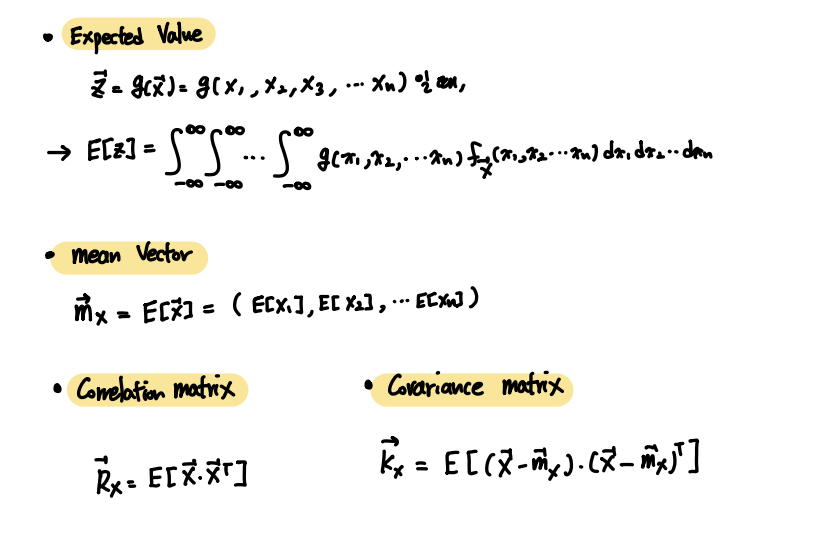 • Expected Value
z⃗ = g(x⃗) = g(x₁, x₂, x₃, ⋯ xₙ) 일 때,
→ E[z] = ∫_{-∞}^{∞} ∫_{-∞}^{∞} ⋯ ∫_{-∞}^{∞} g(x₁, x₂, ⋯ xₙ) f_{x⃗}(x₁, x₂ ⋯ xₙ) dx₁ dx₂ ⋯ dxₙ
• mean Vector
m⃗ₓ = E[x⃗] = (E[x₁], E[x₂], ⋯ E[xₙ])
• Correlation matrix
R⃗ₓ = E[x⃗·x⃗ᵀ]
• Covariance matrix
k⃗ₓ = E[(x⃗ - m⃗ₓ)·(x⃗ - m⃗ₓ)ᵀ]